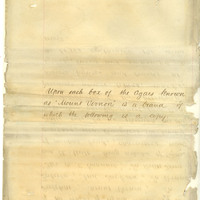 Upon each box of the Cigars known
as "Mount Vernon" is a brand of
which the following is a copy.